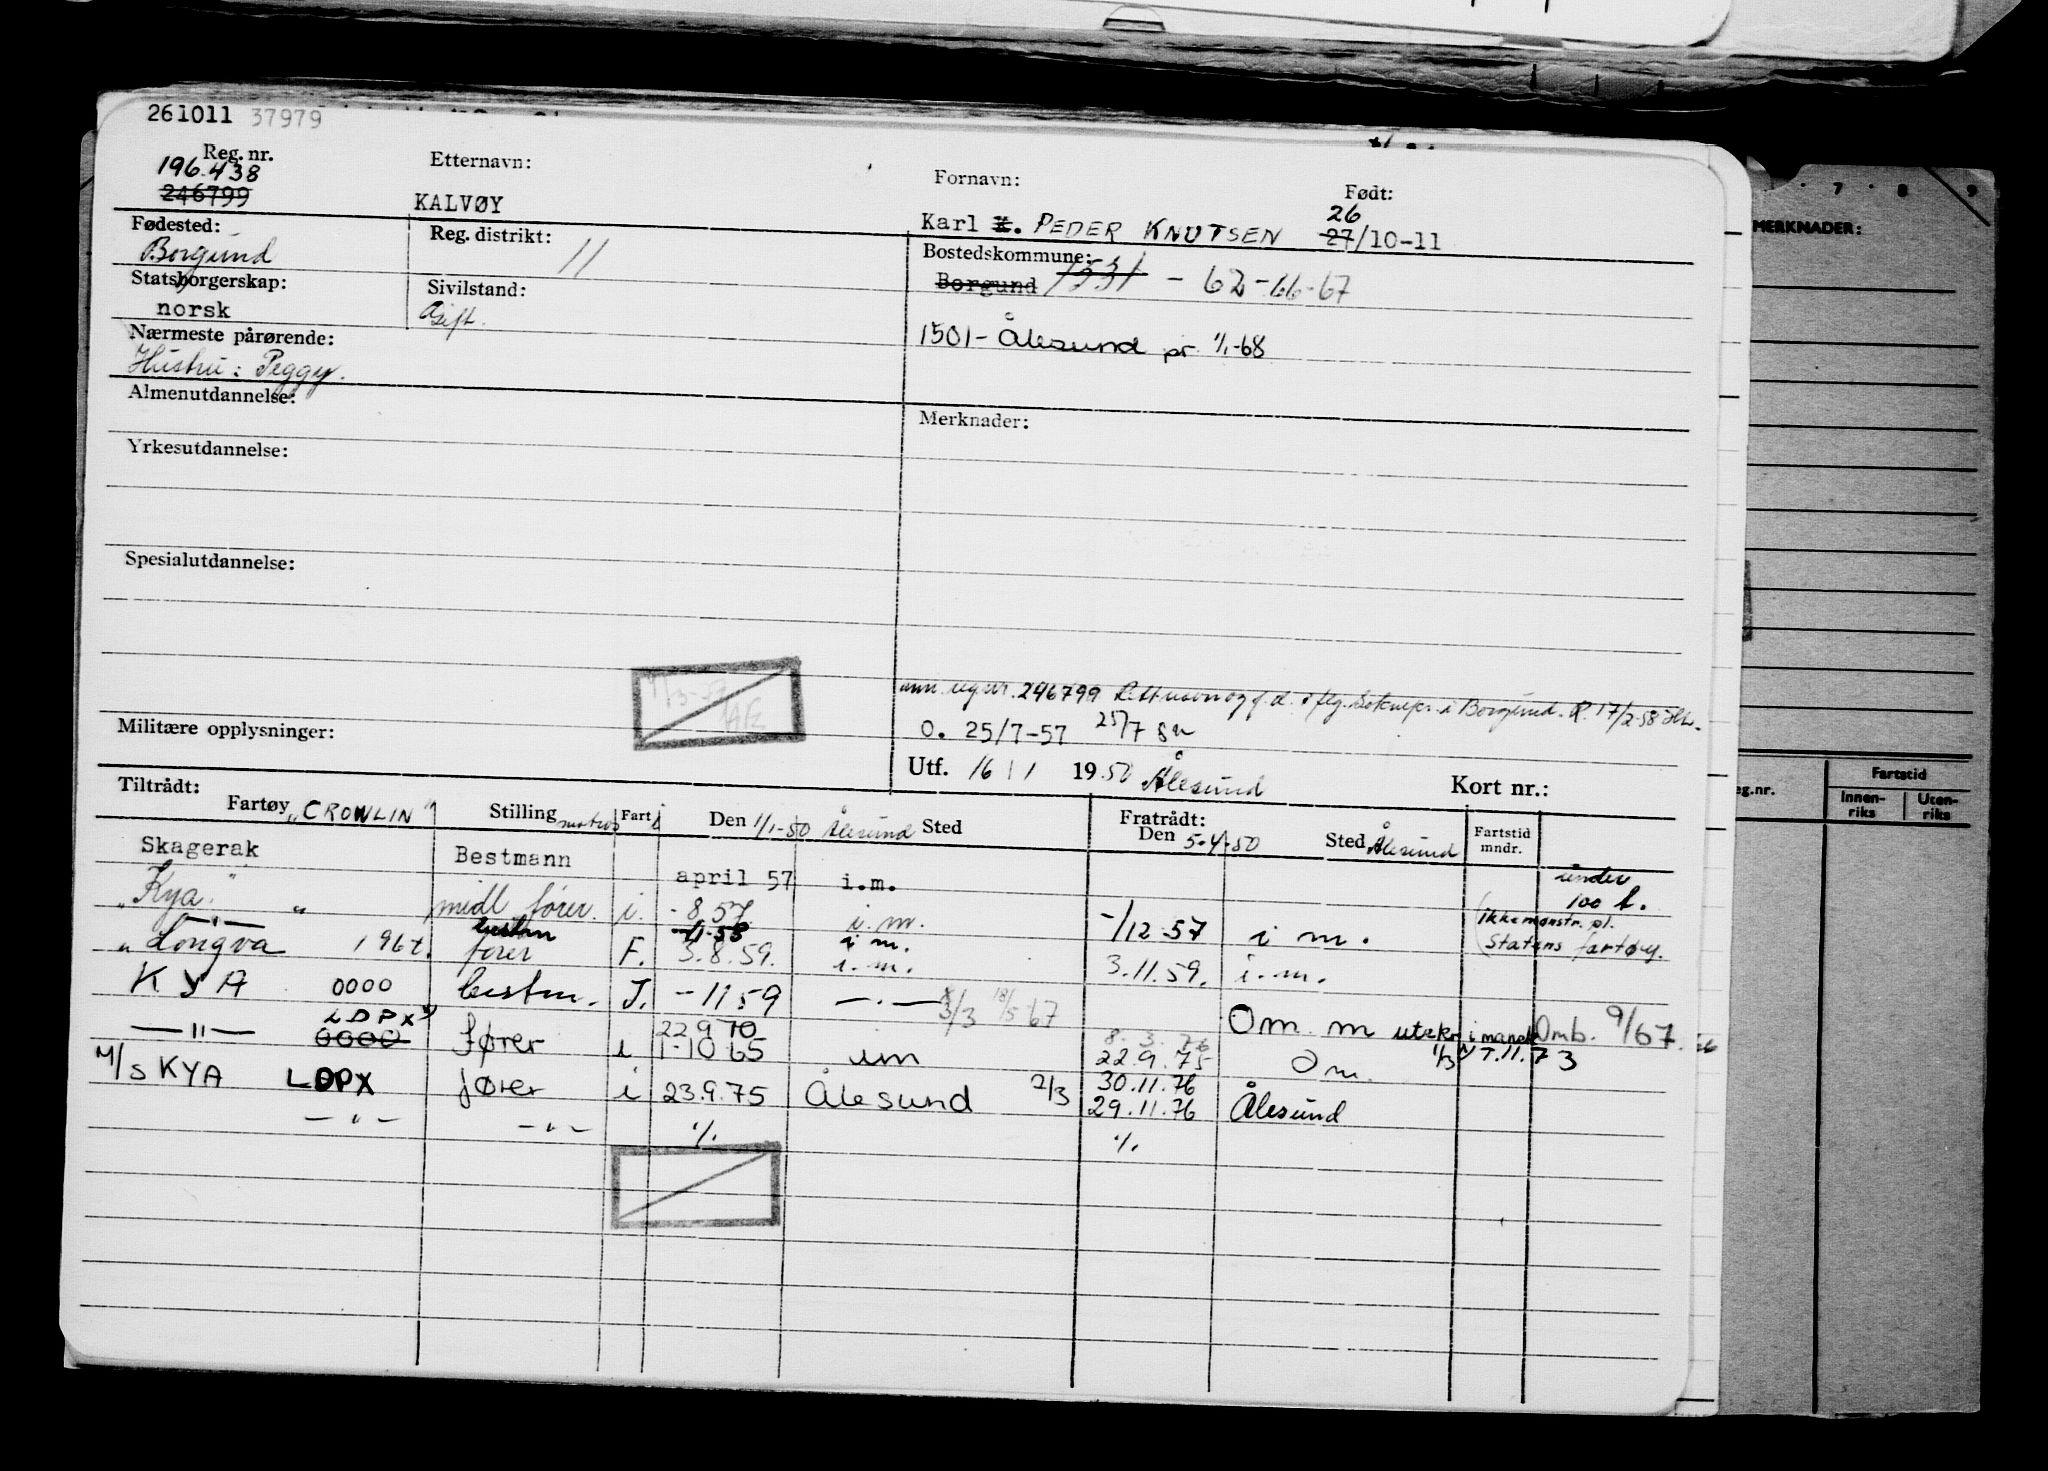 261011 37979
Reg. nr. Etternavn: Fornavn: Født:
196.438 26
246799 KALVØY Karl K. PEDER KNUTSEN 27/10-11
Fødested: Reg. distrikt: Bostedskommune:
Borgund 11 Borgund 1531 - 62-66-67
Statsborgerskap: Sivilstand:
norsk Gift.
Nærmeste pårørende: 1501- Ålesund pr. 1/1-68
Hustru: Peggy.
Almenutdannelse: Merknader:
Yrkesutdannelse:
Spesialutdannelse:
246799 i Borgund. 17/2-58
Militære opplysninger: O. 25/7-57 25/7
Utf. 16/1 1950 Ålesund Kort nr.:
Tiltrådt: Fratrådt:
Fartøy "CROWLIN" Stilling matros Fart i Den 1/1-50 Ålesund Sted Den 5.4.50 Sted Ålesund Fartstid mndr.
Skagerak Bestmann april 57 i.m. under 100 t.
"Kya" " midl fører. i. -8.57 i.m. -/12-57 i m. (ikke mønstr. pl.
—"— bestm -11-58 i.m. (Statens fartøy.
"Longva 196 t. fører F. 3.8.59. i.m. 3.11.59. i.m.
KYA 0000 bestm. I. -11 59 —.— 3/3 18/5 67 Om m Omb. 9/67
LDPX 22 9 70 8.3.76
—"— 0000 fører i 1-10 65 im 22.9.75 Om. 7.11.73
M/S KYA LDPX fører i 23.9.75 Ålesund 2/3 30.11.76
29.11.76 Ålesund
—"— —"— ./. ./.
MERKNADER:
7 8 9
eg.nr. Fartstid
Innen-riks Uten-riks